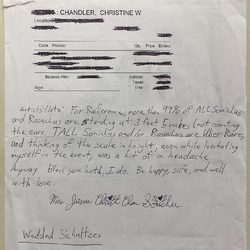 CHANDLER, CHRISTINE W
Location
Code Product Qty Price Extend
Balance After Subtotal
Taxes
Total
Mgmt
"Artists Note: For Reference, more than 99% of ALL Sonichus
and Rosechus are standing at 3 feet 5 inches (not counting
the ears. TALL Sonichus and/or Rosechus are Uber Rare,
and thinking of the scale in height, even while levitating
myself in the event, was a bit of a headache.
Anyway. Bless you both, I do. Be happy, safe, and well
with love.
Mrs.
Wedded Schultzes